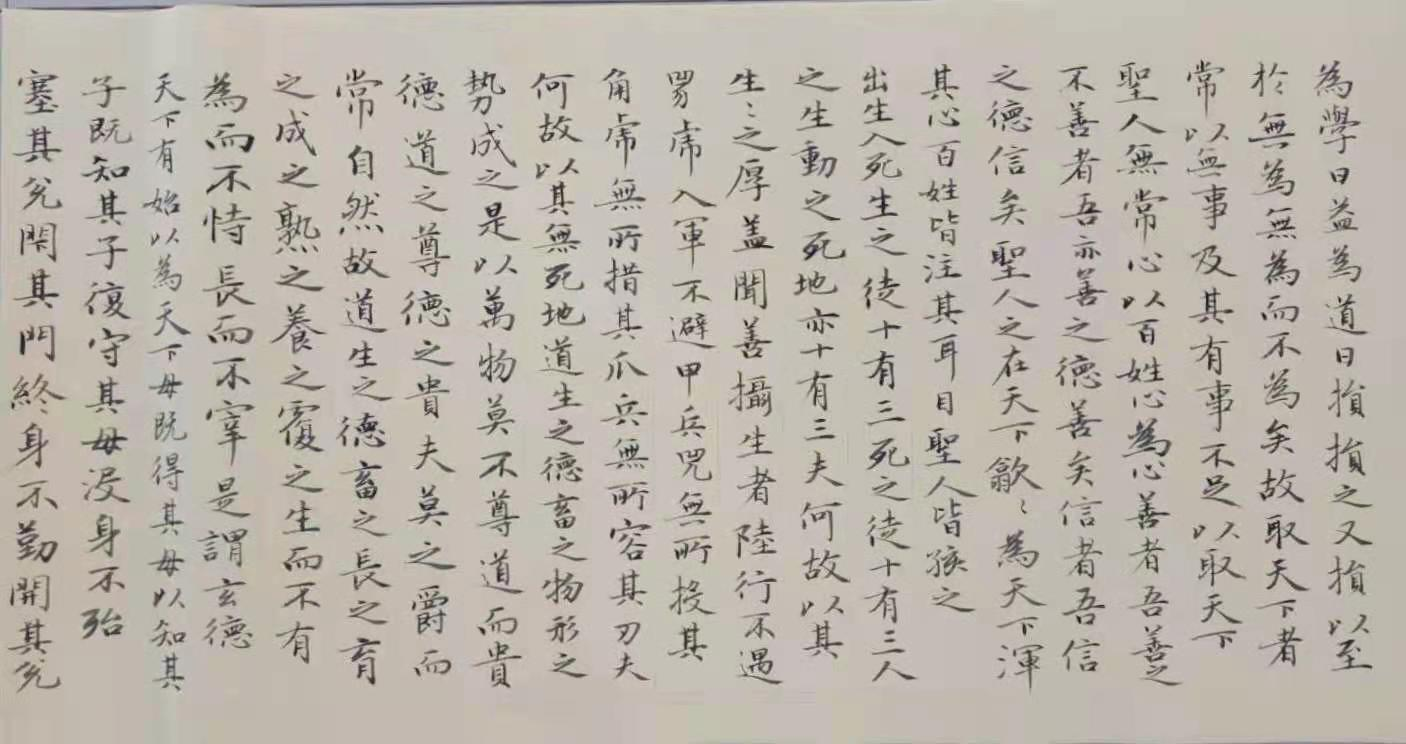 為學日益為道日損損之又損以至
於無為無為而不為矣故取天下者
常以無事及其有事不足以取天下
聖人無常心以百姓心為心善者吾善之
不善者吾亦善之德善矣信者吾信
之德信矣聖人之在天下歙〻為天下渾
其心百姓皆注其耳目聖人皆孩之
出生入死生之徒十有三死之徒十有三人
之生動之死地亦十有三夫何故以其
生〻之厚盖聞善攝生者陸行不遇
兕虎入軍不避甲兵兕無所投其
角虎無所措其爪兵無所容其刃夫
何故以其無死地道生之德畜之物形之
勢成之是以萬物莫不尊道而貴
德道之尊德之貴夫莫之爵而
常自然故道生之德畜之長之育
之成之熟之養之覆之生而不有
為而不恃長而不宰是謂玄德
天下有始以為天下母既得其母以知其
子既知其子復守其母沒身不殆
塞其兌閉其門終身不勤開其兌